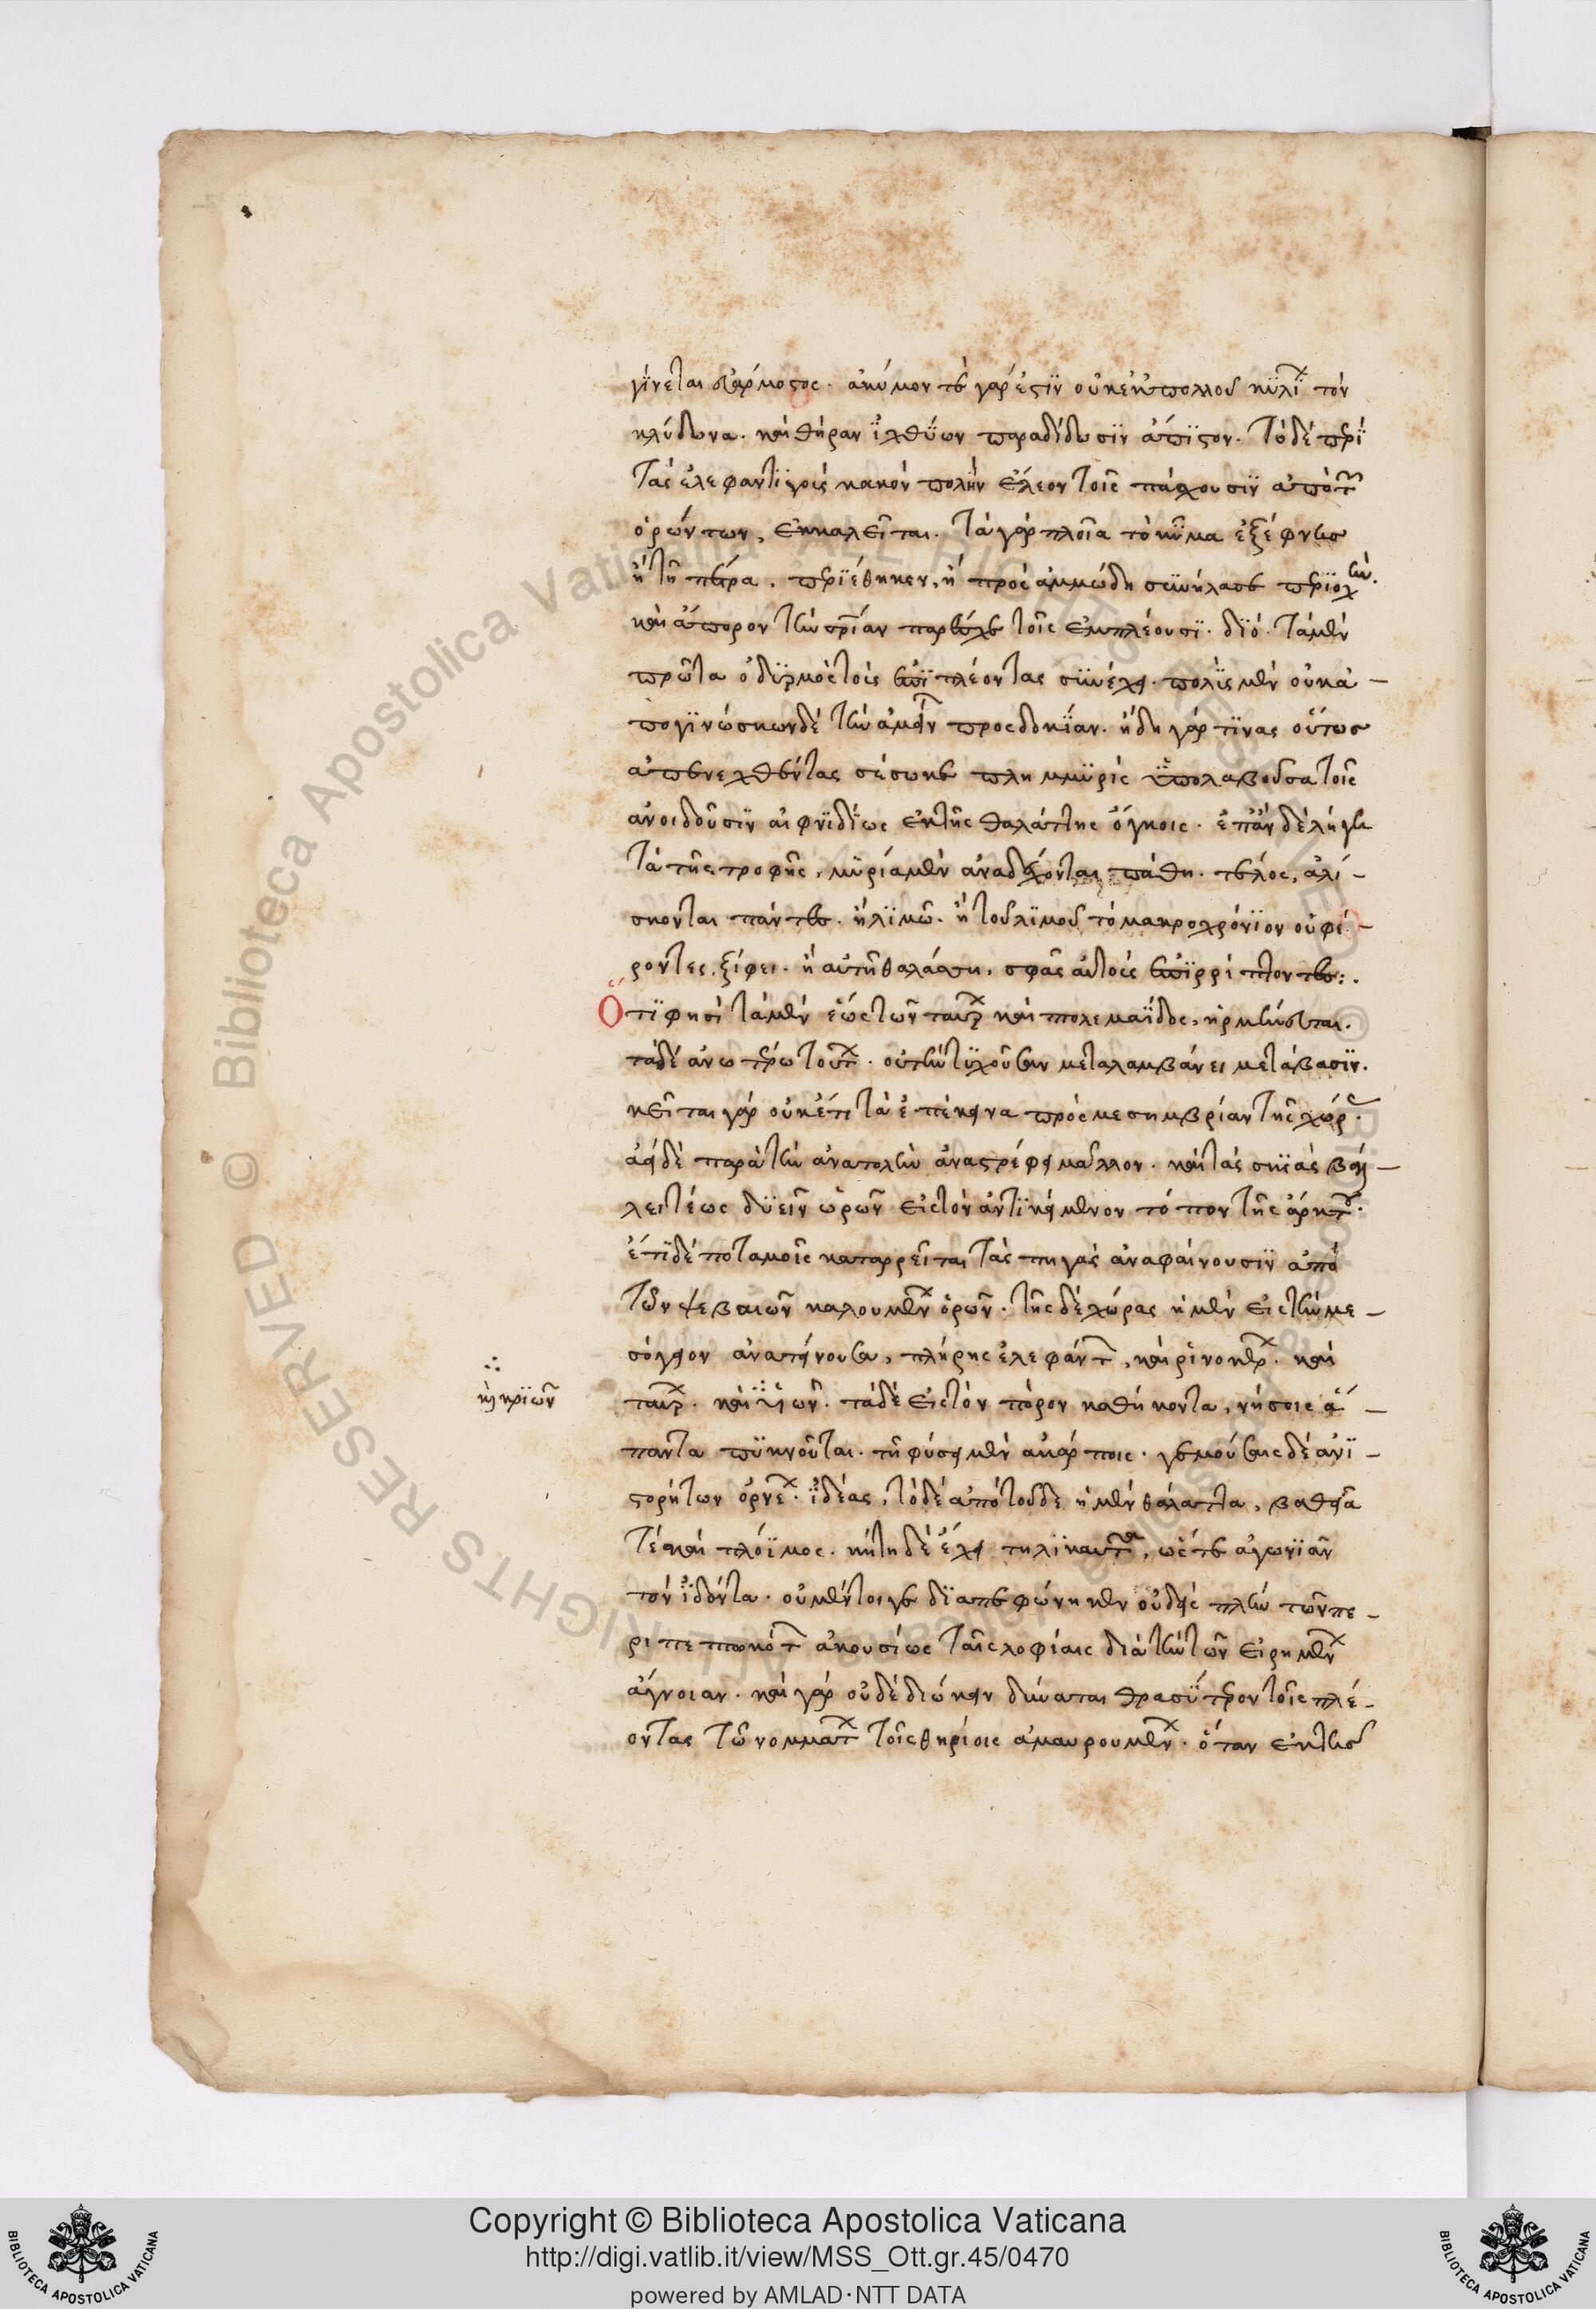 γίνεται εὐάρμοστος. ἀκύμον τε γάρ ἐστιν οὐκ ἐκ πολλοῦ κυλῖ τὸν
κλύδωνα. καὶ θήραν ἰχθύων παραδίδωσιν ἄπιστον. τὸ δὲ περὶ
τὰς ἐλεφαντηγοὺς κακὸν πολὺν ἔλεον τοῖς πάσχουσιν ἀπὸ τ
ὁρώντων, ἐκκαλεῖται. τὰ γὰρ πλοῖα τὸ κῦμα ἐξαίφνης
ἢ τῇ πέτρα, περιέθηκεν, ἢ πρὸς ἀμμώδη συνήλασε περιοχὴν.
καὶ ἄπορον τὴν σωτηρίαν παρέσχε τοῖς ἐμπλέουσι. διό. τὰ μὲν
πρῶτα ὀδυρμὸς τοὺς ἐπιπλέοντας συνέχει. πολὺς μὲν οὐκ ἀ-
πογινώσκων δὲ τὴν ἀμείν προσδοκίαν. ἤδη γάρ τινας οὕτως
ἀπενεχθέντας σέσωκε πλημμυρὶς ὑπολαβοῦσα τοῖς
ἀνοιδοῦσιν αἰφνιδίως ἐκ τῆς θαλάττης ὄγκοις. ἐπὰν δὲ λήγει
τὰ τῆς τροφῆς, μυρία μὲν ἀναδέχονται πάθη. τέλος, ἁλί-
σκονται πάντες. ἢ λιμῶ. ἢ τοῦ λιμοῦ τὸ μακροχρόνιον οὐ φέ-
ροντες, ξίφει. ἢ αὐτῇ θαλάσση, σφᾶς αὐτοὺς ἐπιρρίπτοντες:.
Ὅτι φησὶ τὰ μὲν ἕως τῶν ταύρ καὶ πολεμαΐδος, ἡρμήνευται.
τὰ δὲ ἀνωτέρω τούτ. οὐ τὴν τυχοῦσαν μεταλαμβάνει μετάβασιν.
κεῖται γὰρ οὐκέτι τὰ ἐπέκεινα πρὸς μεσημβρίαν τῆς χώρ.
ἀεὶ δὲ παρὰ τὴν ἀνατολὴν ἀναστρέφει μᾶλλον. καὶ τὰς σκιὰς βάλ-
λει τέως δυεῖν ὡρῶν εἰς τὸν ἀντικείμενον τόπον τῆς ἄρκτ.
ἔτι δὲ ποταμοῖς καταρρεῖται τὰς πηγὰς ἀναφαίνουσιν ἀπὸ
τῶν ψεβαιῶν καλουμέν ὀρῶν. τῆς δὲ χώρας ἡ μὲν εἰς τὴν με-
σόγειον ἀνατείνουσα, πλήρης ἐλεφάντ, καὶ ῥινοκέρ. καὶ
ταύρ. καὶ ὑιῶν. τὰ δὲ εἰς τὸν πόρον καθήκοντα, νήσοις ἅ-
παντα πυκνοῦται. τῇ φύσει μὲν ἀκάρποις. γεμούσαις δὲ ἀνι-
στορήτων ὀρνέ. ἰδέας, τὸ δὲ ἀπὸ τοῦδε ἡ μὲν θάλαττα, βαθεῖα
τὲ καὶ πλόϊμος. κήτη δὲ ἔχει τηλικαῦτα, ὥς τε ἀγωνιᾶν
τὸν ἰδόντα. οὐ μέντοι γε διαπεφώνηκεν οὐδεὶς πλὴν τῶν πε-
ριπεπτωκότ ἀκουσίως ταῖς λοφίαις διὰ τὴν τῶν εἰρημέν
ἄγνοιαν. καὶ γὰρ οὐδὲ διώκειν δύναται θρασύτερον τοῖς πλέ-
οντας τῶν ὀμμάτ τοῖς θηρίοις ἀμαυρουμέν. ὅταν ἐκ τῆς
κὴ κριῶν
Copyright © Biblioteca Apostolica Vaticana
http://digi.vatlib.it/view/MSS_Ott.gr.45/0470
powered by AMLAD·NTT DATA
BIBLIOTECA APOSTOLICA VATICANA
BIBLIOTECA APOSTOLICA VATICANA